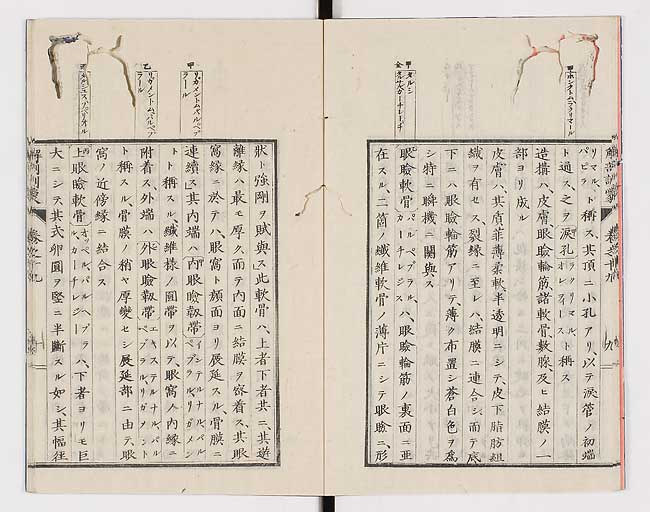 甲 ポンクトムラクリマール
リマルト稱ス其頂ニ小孔アリ以テ涙管ノ初端
ト通ス之ヲ涙孔 ラクリマルト オレフィースト 稱ス
造構ハ皮膚眼瞼輪筋諸軟骨數腺及ヒ結膜ノ一
部ヨリ成ル
皮膚ハ其質菲薄柔軟半透明ニシテ皮下脂肪組
織ヲ有セス裂緣ニ至レハ結膜ニ連合シ面テ底
下ニハ眼瞼輪筋アリテ薄ク布置シ蒼白色ヲ爲
シ特ニ瞬機ニ關與ス
眼瞼軟骨 パルペブラル カーチレジス ハ眼瞼輪筋ノ裏面ニ亞
在スル二箇ノ纖維軟骨ノ薄片ニシテ眼瞼ニ形
甲 タルシ
解剖訓蒙
九
甲 リガメントムパルペブラール
乙 リガメントムパルペブラール
狀ト強剛ヲ賦與ス此軟骨ハ上者下者共ニ其遊
離緣ハ最モ厚ク面テ内面ニ結膜ヲ密着ス其眼
窩緣ニ於テハ眼窩ト顏面ヨリ展延スル骨膜ニ
連續ス其内端ハ内眼瞼靱帶 インテルナルパル ペブラルリガメン
トト稱スル纖維樣ノ圓帶ヲ以テ眼窩ノ内緣ニ
附着ス外端ハ外眼瞼靱帶 エキステルナルパル ペブラルリガメント
ト稱スル骨膜ノ稍ヤ厚變セシ展延部ニ由テ眼
窩ノ近傍緣ニ結合ス
上眼瞼軟骨 ハ下者ヨリモ巨
大ニシテ其式卵圓ヲ竪ニ半斷スル如シ其幅徑
解剖訓蒙